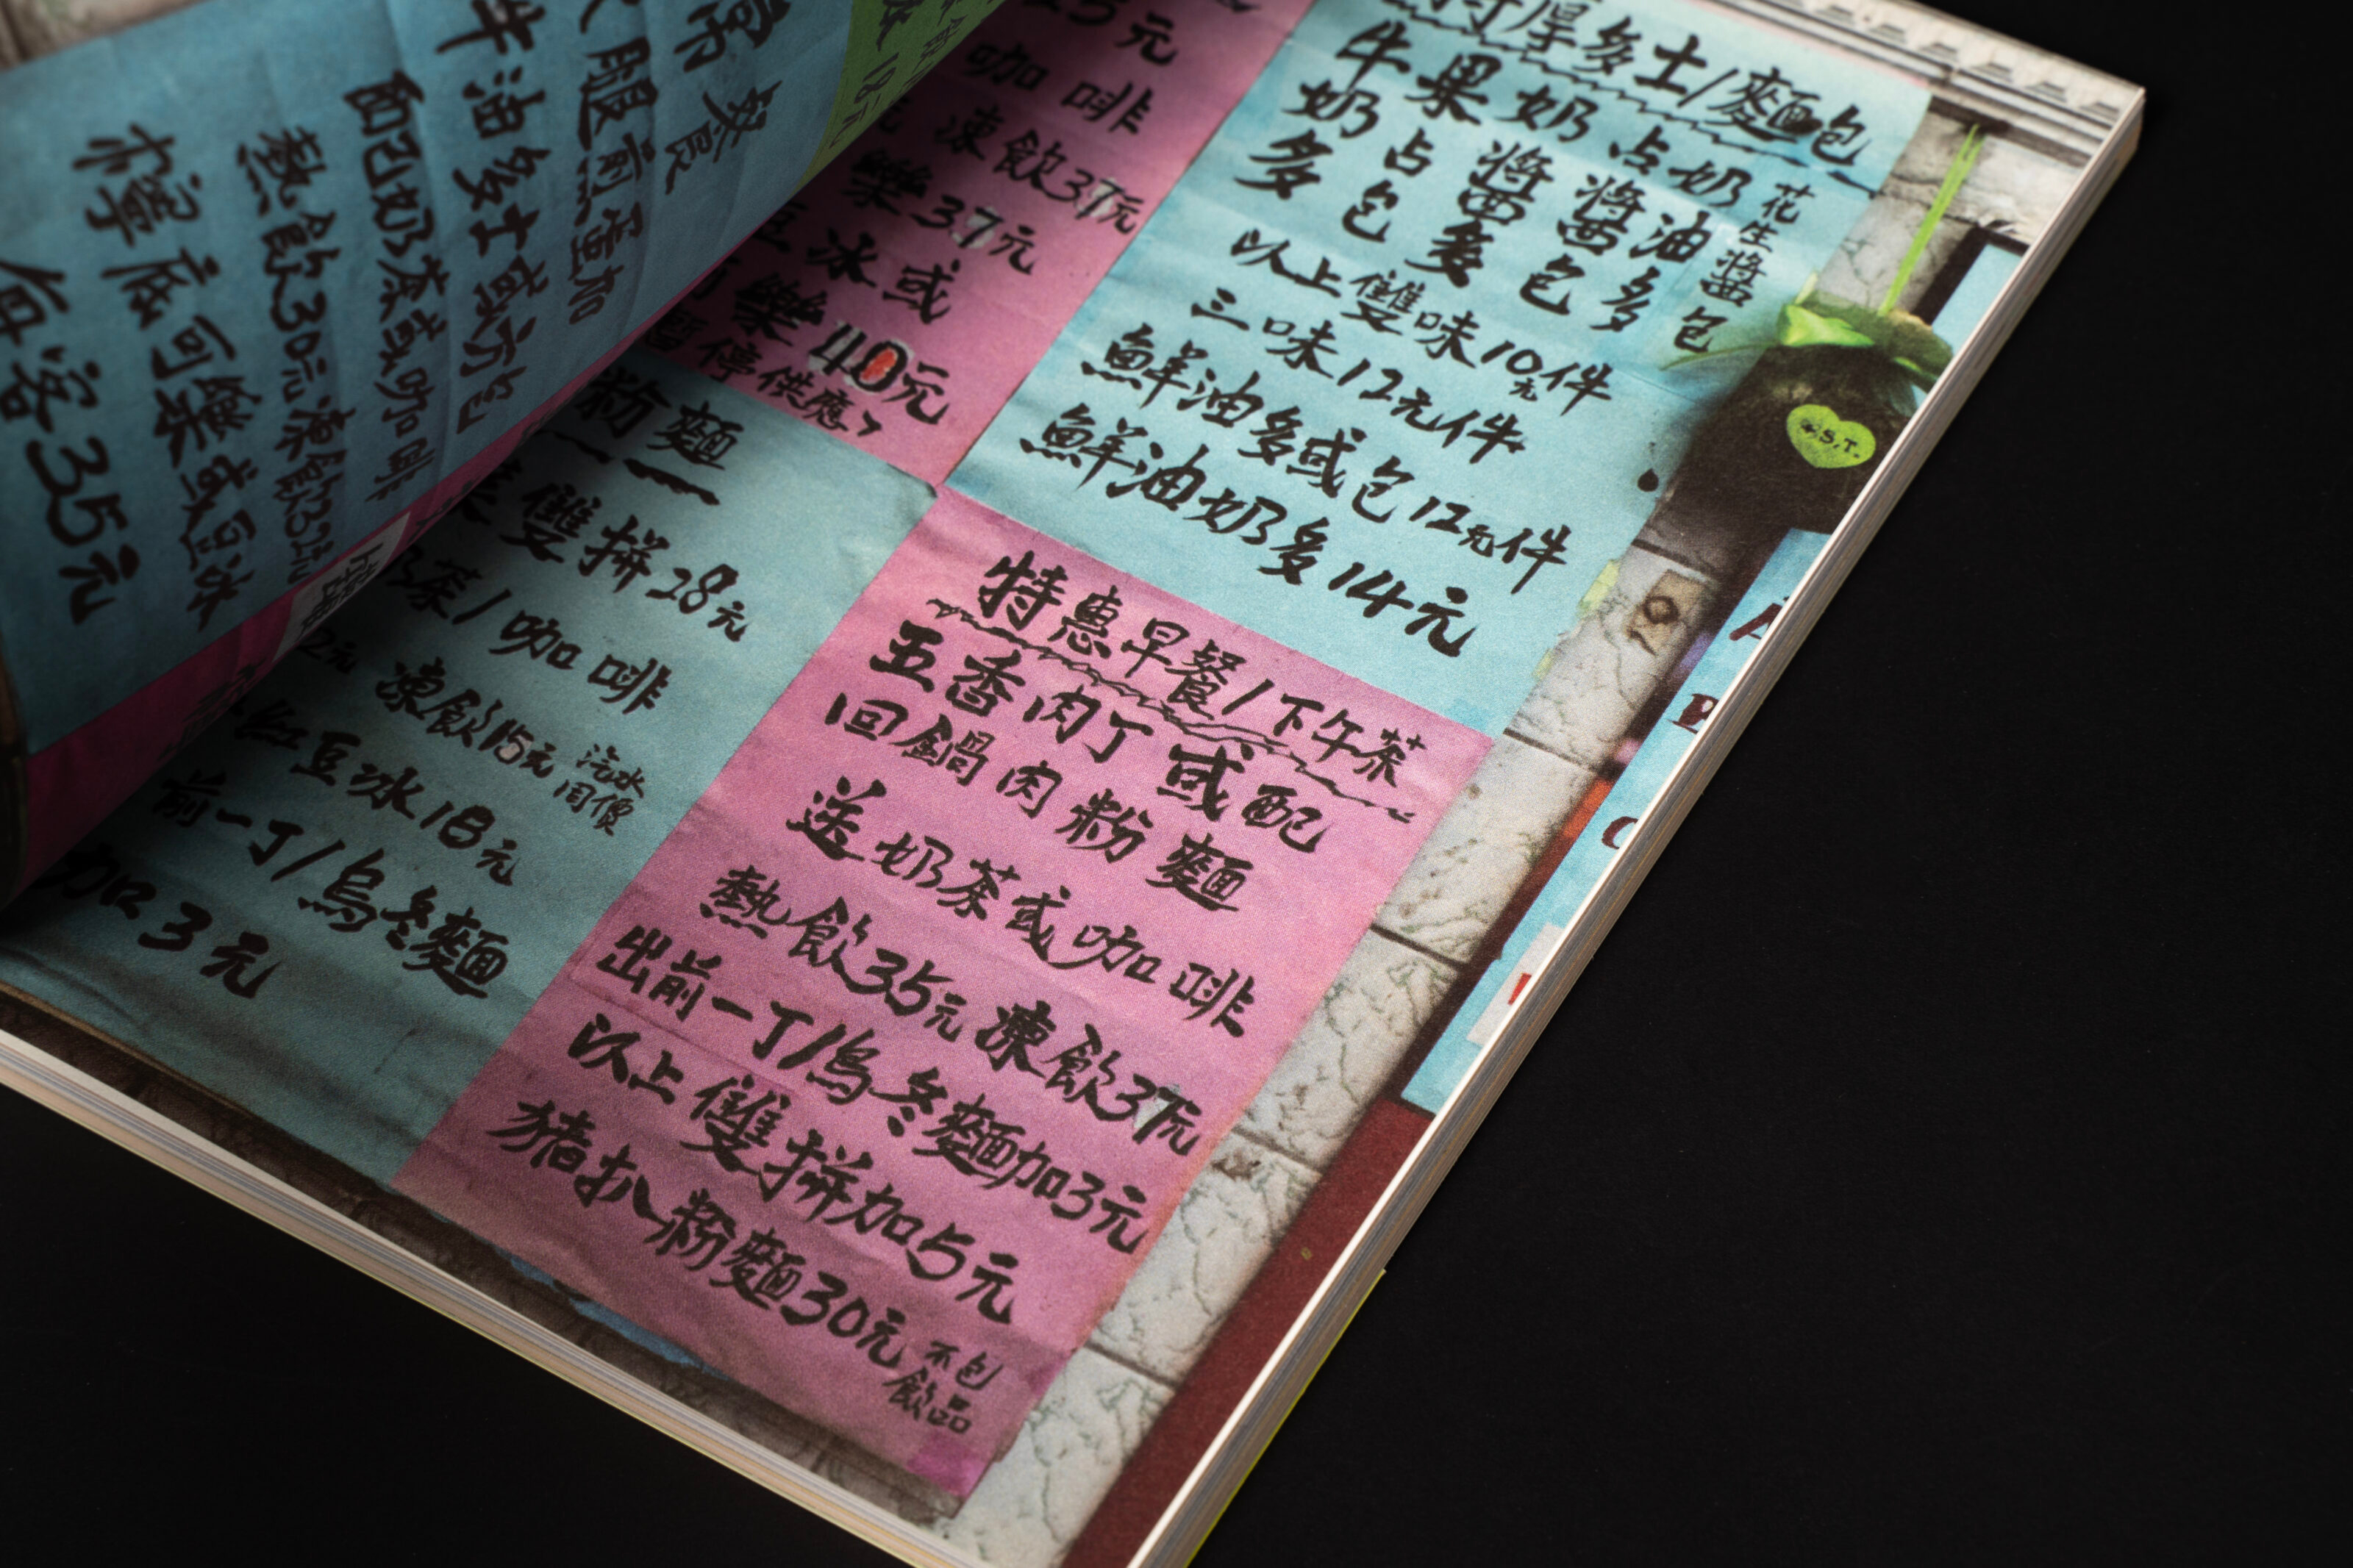 厚多士/麵包
牛奶多
果占包
奶醬多
占醬包
奶油多
花生醬包
以上雙味10元件
三味12元件
鮮油多或包12元件
鮮油奶多14元
特惠早餐/下午茶
五香肉丁或配
回鍋肉粉麵
送奶茶或咖啡
熱飲35元凍飲37元
出前一丁/烏冬麵加3元
以上雙拼加5元
豬扒粉麵30元
不包飲品
元
咖啡
凍飲37元
樂37元
冰或
樂40元
暫停供應
粉麵
雙拼28元
奶茶/咖啡
2元 凍飲15元
汽水同價
紅豆冰18元
前一丁/烏冬麵
加3元
常餐
腿煎蛋加
牛油多士或方包
配奶茶或咖啡
熱飲30元凍飲32元
檸底可樂或豆冰
每客35元